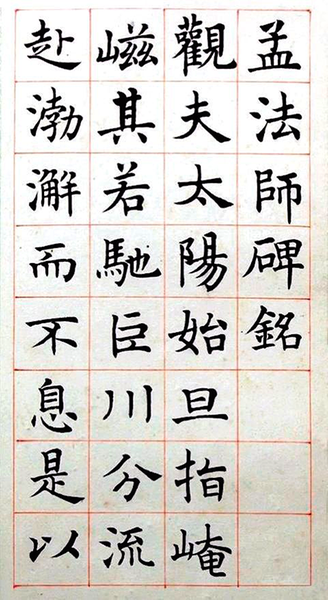 孟法師碑銘
觀夫太陽始旦指崦
嵫其若馳巨川分流
赴渤澥而不息是以